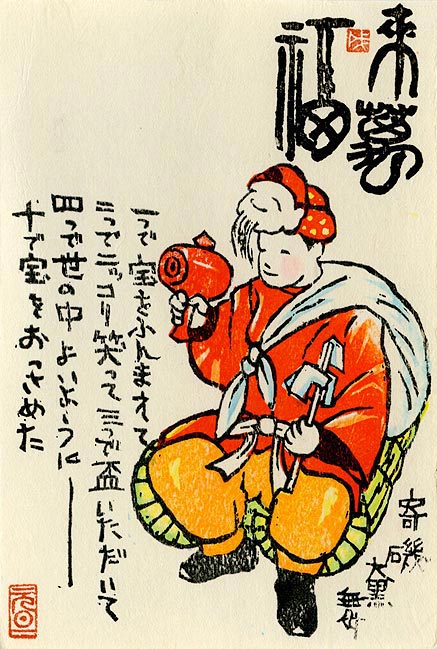 来萬
福
一つで宝をふんまえて
二つでニッコリ笑って三つで盃いただいて
四つで世の中よいように
十で宝をおっさめた
寄磯
大黒
舞